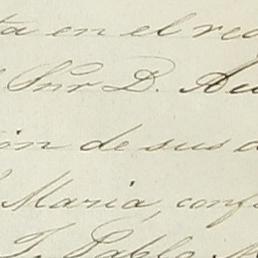 ta en el rec
Snr D. Au
ón de sus a
María, conf
T. Pablo